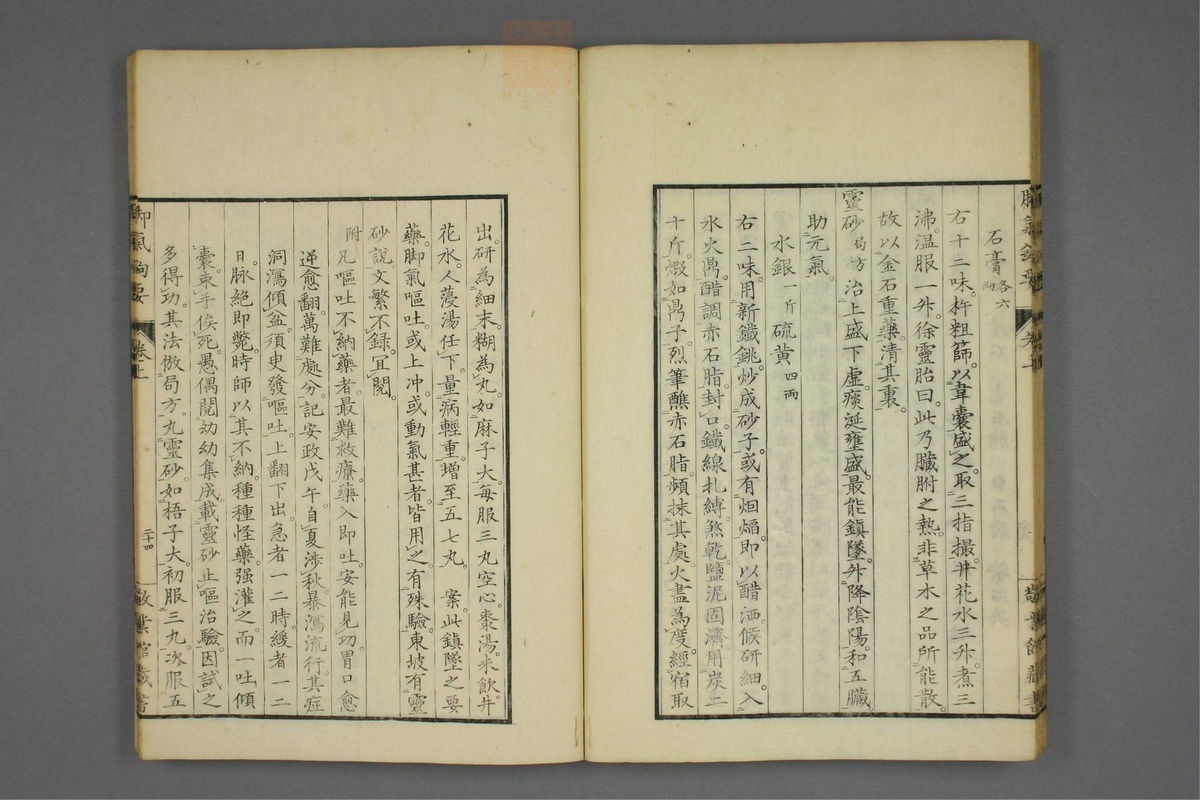 石膏各六兩
右十二味。杵粗篩。以韋囊盛之。取三指撮。井花水三升。煮三
沸。溫服一升。徐靈胎曰。此乃臟腑之熱。非草木之品所能散。
故以金石重藥。清其裏。
靈砂局方治上盛下虛。痰涎壅盛。最能鎮墜。升降陰陽。和五臟
助元氣。
水銀一斤硫黃四兩
右二味。用新鐵銚。炒成砂子。或有烟熖。即以醋洒。候研細。入
水火鼎。醋調赤石脂。封口。鐵線扎縛。煞乾。鹽泥固濟。用炭二
十斤。煆如鼎子。烈筆蘸赤石脂。頻抹其處。火盡為度。經宿取
出。研為細末。糊為丸。如麻子大。每服三丸。空心。棗湯。米飲。井
花水。人薓湯任下。量病輕重。增至五七丸。案。此鎮墜之要
藥。脚氣嘔吐。或上冲。或動氣甚者。皆用之。有殊驗。東坡有靈
砂說。文繁不錄。宜閱。
附凡嘔吐不納藥者。最難救療。藥入即吐。安能見功。胃口愈
逆愈翻。萬難處分。記安政戊午。自夏涉秋。暴瀉流行。其症
洞瀉傾盆。須臾發嘔吐。上翻下出。急者一二時。緩者一二
日。脉絕即斃。時師以其不納。種種怪藥。强灌之。而一吐傾
囊。束手俟死。愚偶閱幼幼集成。載靈砂止嘔治驗。因試之
多得功。其法倣局方。丸靈砂。如梧子大。初服三丸。次服五
脚氣鉤要
卷上
二十四
敬業館藏書